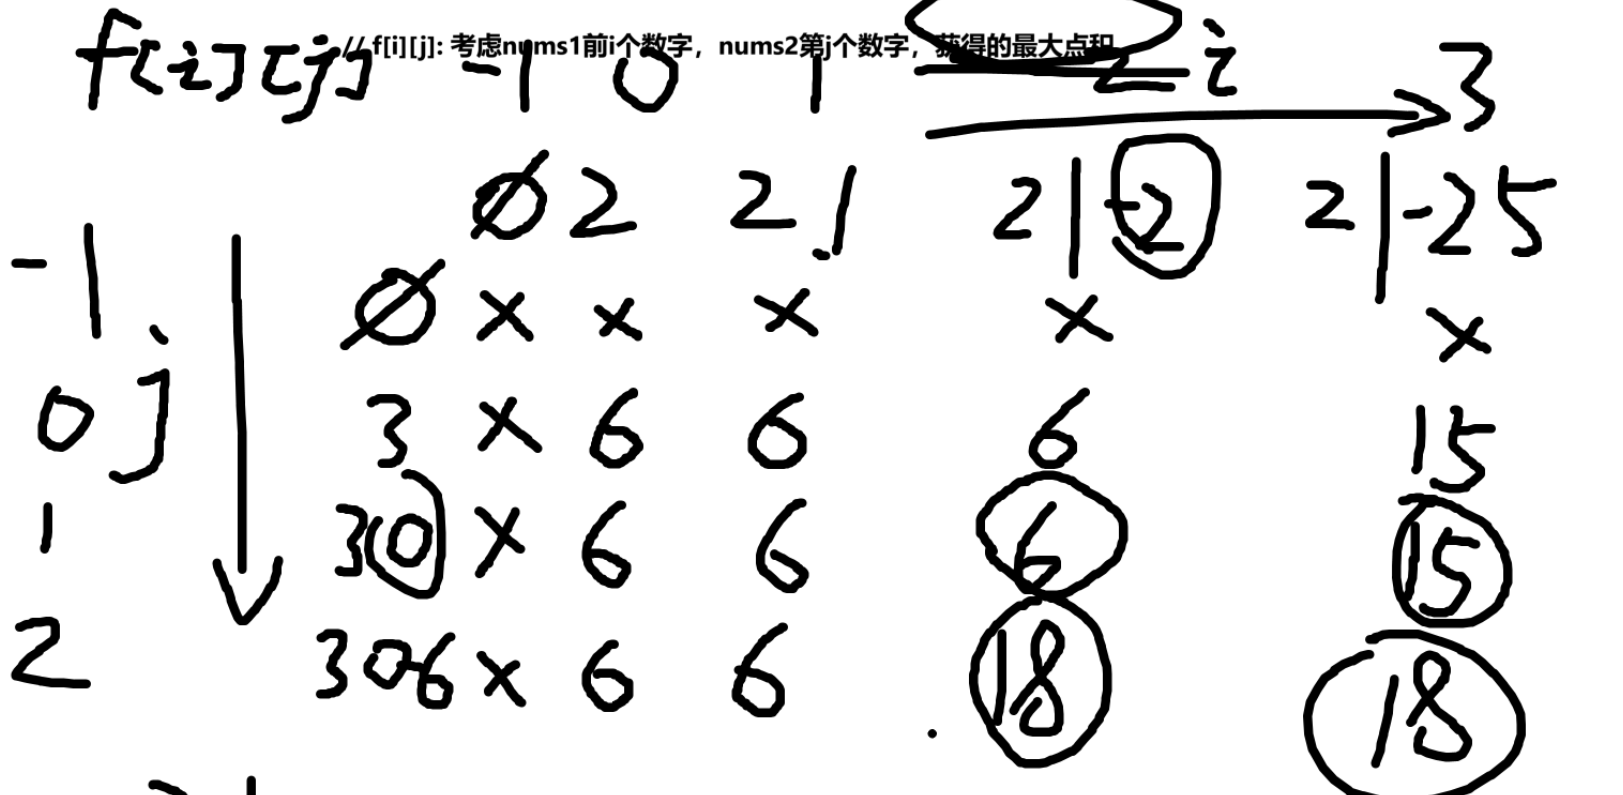 f[i][j] -1 0 1 2 i 3
// f[i][j]: 考虑nums1前i个数字，nums2第j个数字，获得的最大点积
∅ 2 21 21-2 21-25
-1 ∅ × × × × ×
j
0 3 × 6 6 6 15
1 30 × 6 6 6 15
2 30-6 × 6 6 18 18